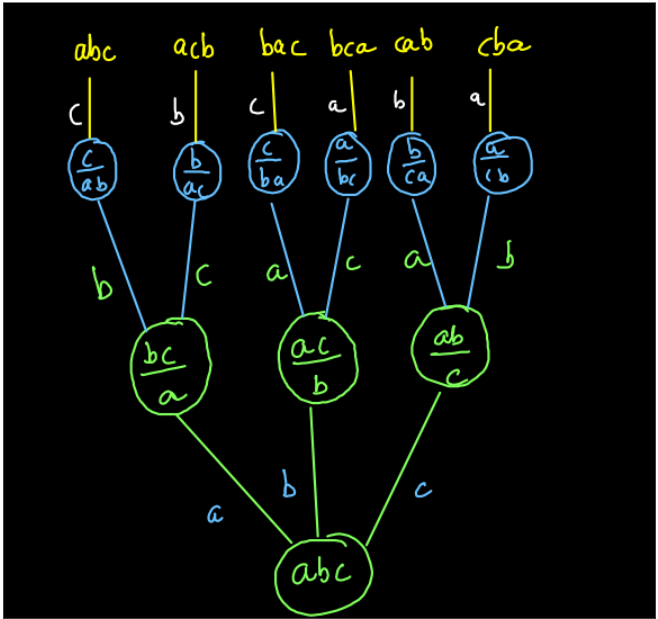 abc acb bac bca cab cba
c b c a b a
c b c a b a
ab ac ba bc ca cb
b c a c a b
bc ac ab
a b c
a b c
abc